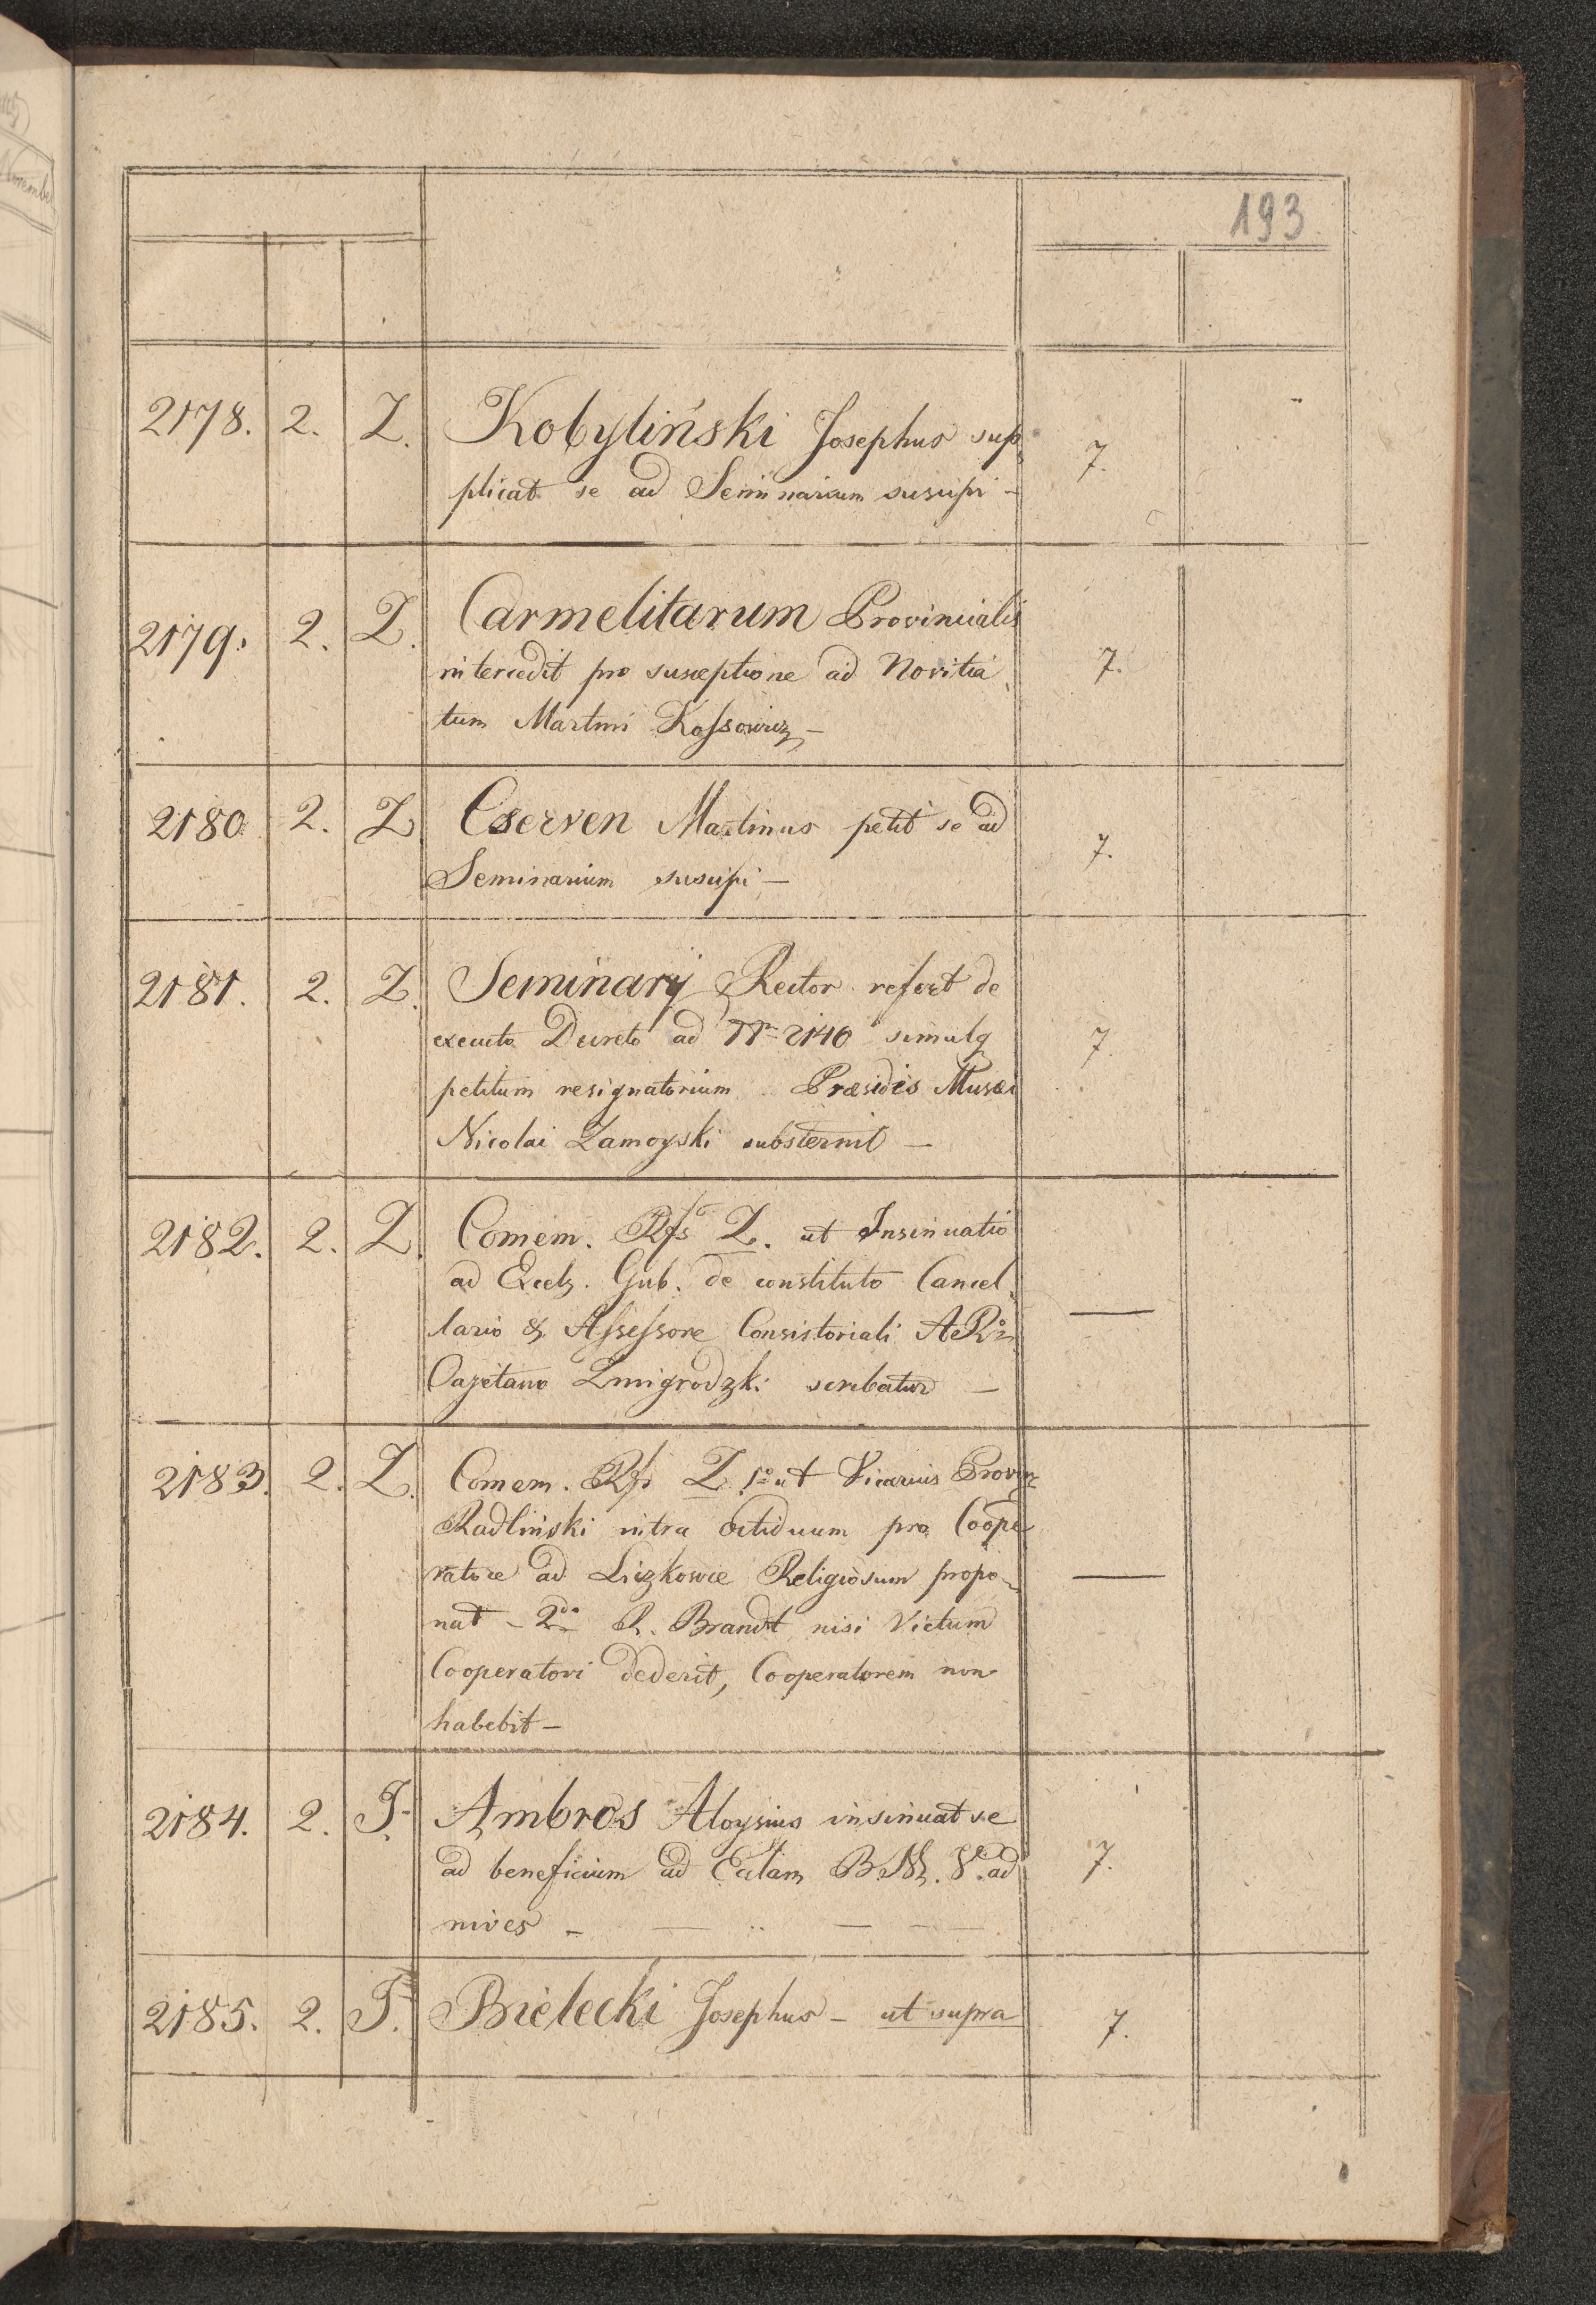 193.
2178. 2. Z. Kobyliński Josephus sup
plicat se ad Seminarium suscipi – 7.
2179. 2. Z. Carmelitarum Provincialis
intercedit pro susceptione ad Novitia
tum Martini Kossowicz – 7.
2180 2. Z. Czerven Martinus petit se ad
Seminarium suscipi – 7.
2181. 2. Z. Seminarij Rector refert de
executo Decreto ad Nr 2140 simulq
petitum resignatorium Præsidis Musæi
Nicolai Zamoyski substernit – 7.
2182. 2. Z. Comem. Rss Z. ut Insinuatio
ad Excels. Gub. de constituto Cancel
lario & Assessore Consistoriali AeRo
Cajetano Zmigrodzki scribatur – —
2183. 2. Z. Comem. Rss Z. 1o ut Vicarius Provin
Radliński intra octiduum pro Coope
ratore ad Liczkowce Religiosum propo
nat – 2do R. Brandt nisi Victum
Cooperatori dederit, Cooperatorem non
habebit – —
2184. 2. T. Ambros Aloysius insinuat se
ad beneficium ad Ecclam B. M. V. ad
nives – 7.
2185. 2. T. Bielecki Josephus – ut supra 7.